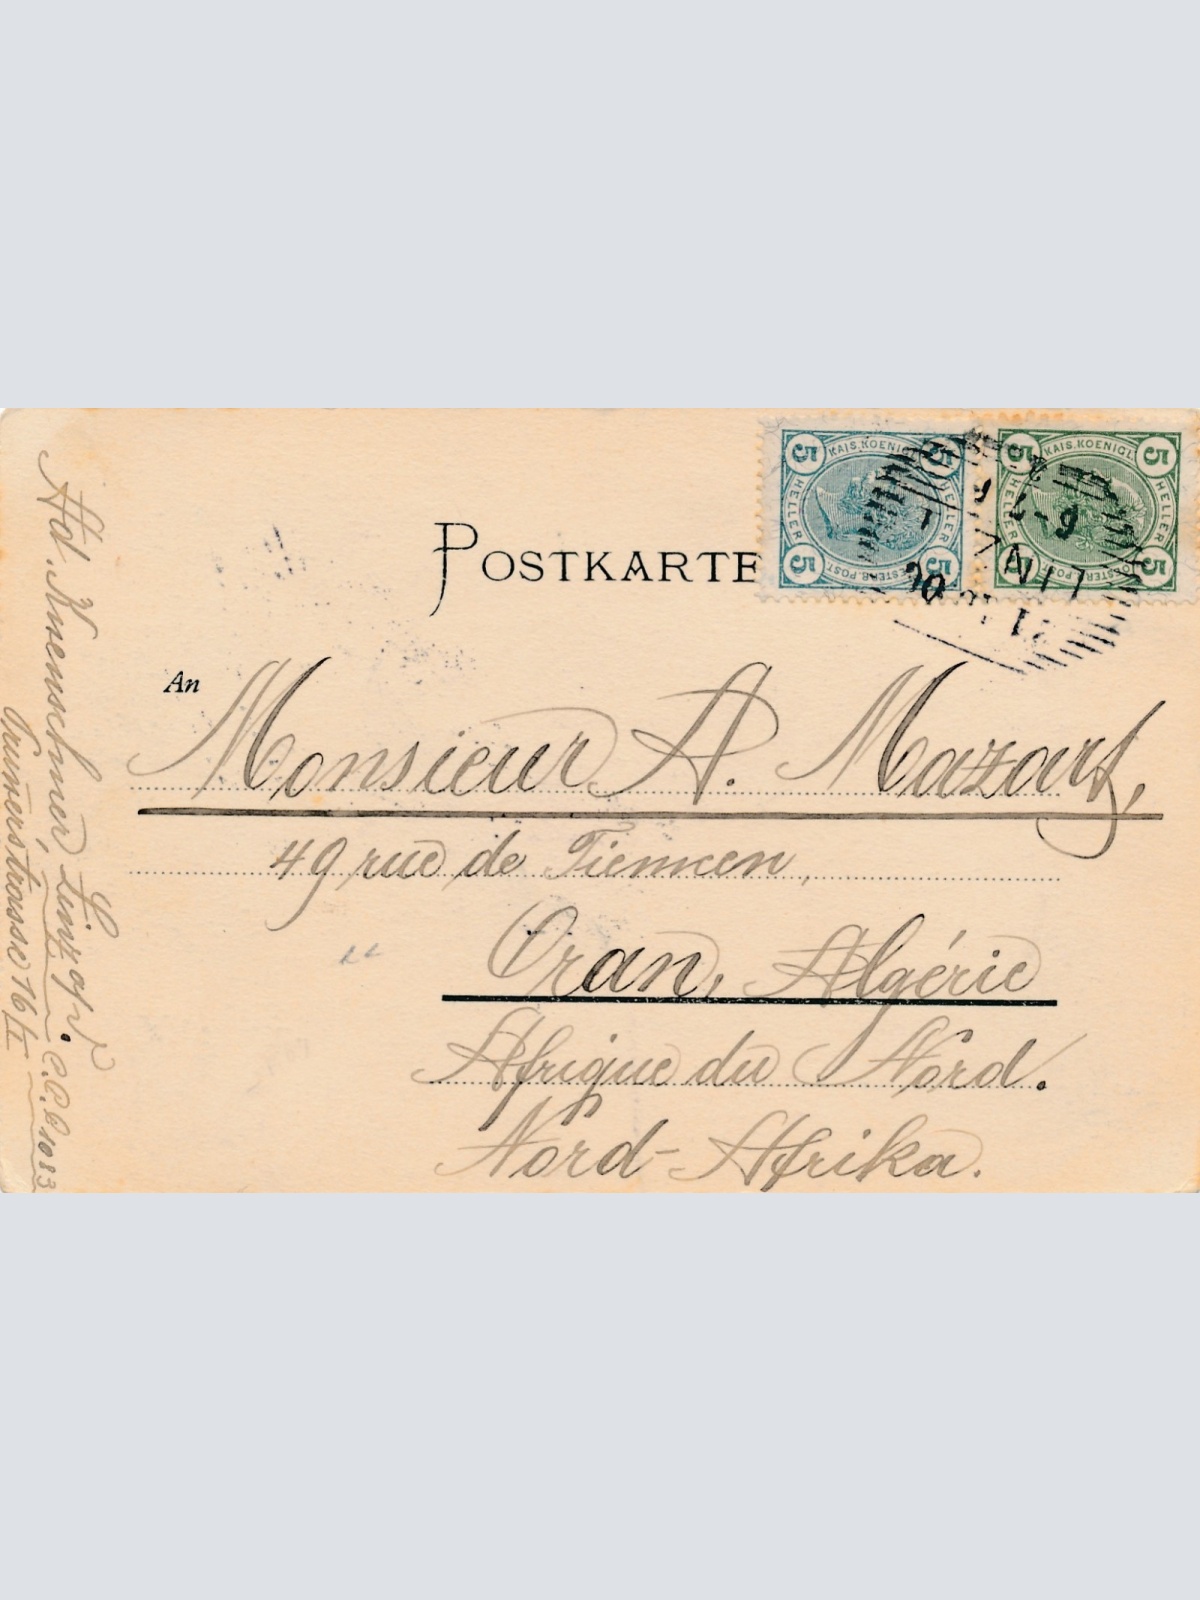 POSTKARTE
5 5 5 5
KAIS. KOENIGL.
HELLER HELLER
OESTERR. POST.
5 5 5 5
KAIS. KOENIGL.
HELLER HELLER
OESTERR. POST.
LINZ
An Monsieur A. Mazart,
49 rue de Tiemcen,
Oran, Algérie
Afrique du Nord.
Nord-Afrika.
Linz a/D.
strasse 16/I